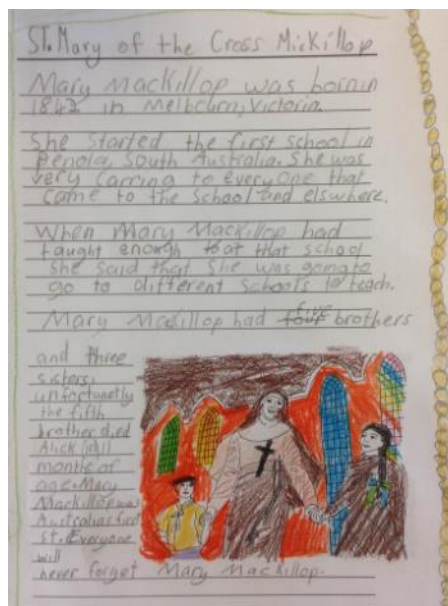 St. Mary of the Cross MicKillop
Mary MacKillop was born in
1842 in Melbourn, Victoria.
She started the first school in
Penola, South Australia. She was
very carring to everyone that
came to the school and elswhere.
When Mary MacKillop had
taught enough to at that school
she said that she was going to
go to different schools to teach.
Mary MacKillop had four five brothers
and three
sisters,
unfortunetly
the fifth
brother died
Alick
months of
age. Mary
MacKillop was
Australias first
St. Everyone
will
never forget Mary MacKillop.